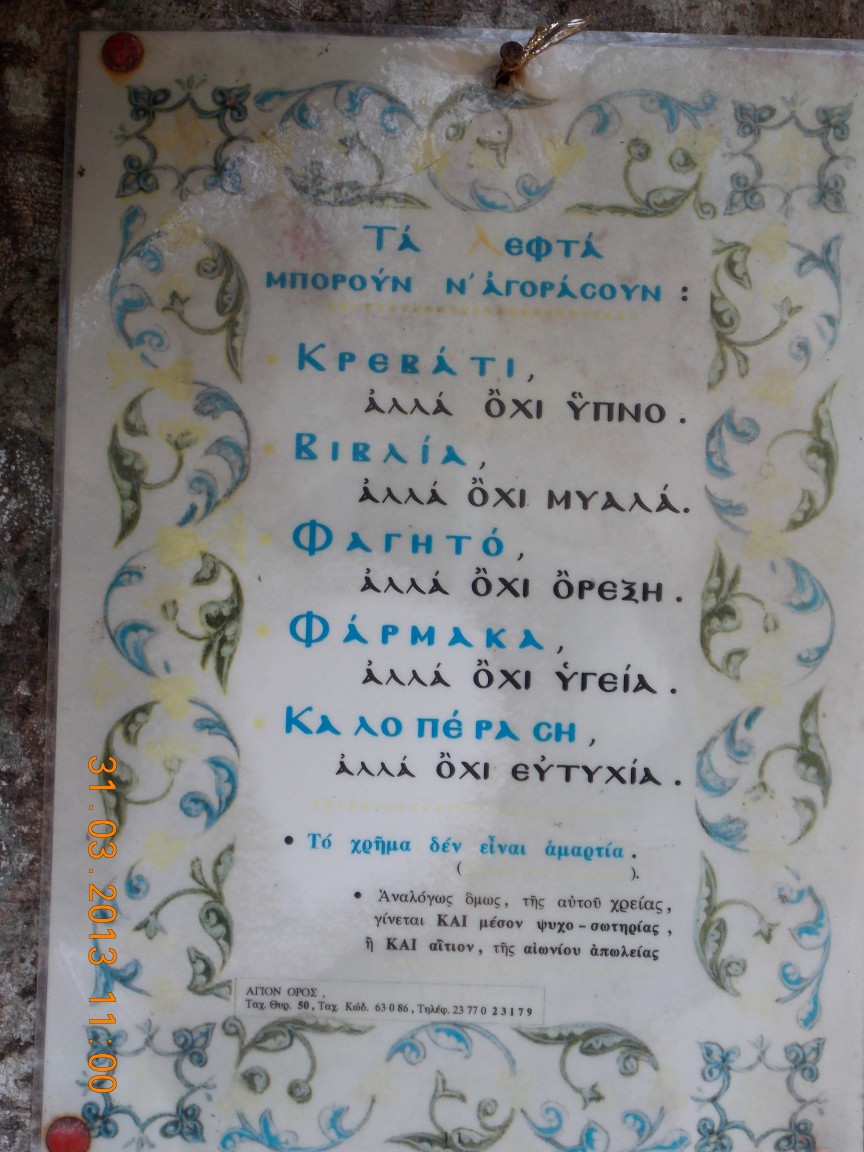 Τά Λεφτά
μπορούν ν' ἀγοράσουν :
Κρεβάτι,
ἀλλά ὄχι ὕπνο.
Βιβλία,
ἀλλά ὄχι μυαλά.
Φαγητό,
ἀλλά ὄχι ὄρεξη.
Φάρμακα,
ἀλλά ὄχι ὑγεία.
Καλοπέραση,
ἀλλά ὄχι εὐτυχία.
• Τό χρῆμα δέν εἶναι ἁμαρτία.
( ).
• Ἀναλόγως ὅμως, τῆς αὐτοῦ χρείας,
γίνεται ΚΑΙ μέσον ψυχο-σωτηρίας,
ἤ ΚΑΙ αἴτιον, τῆς αἰωνίου ἀπωλείας
ΑΓΙΟΝ ΟΡΟΣ,
Ταχ. Θυρ. 50, Ταχ. Κώδ. 63086, Τηλέφ. 23770 23179
31.03.2013 11:00